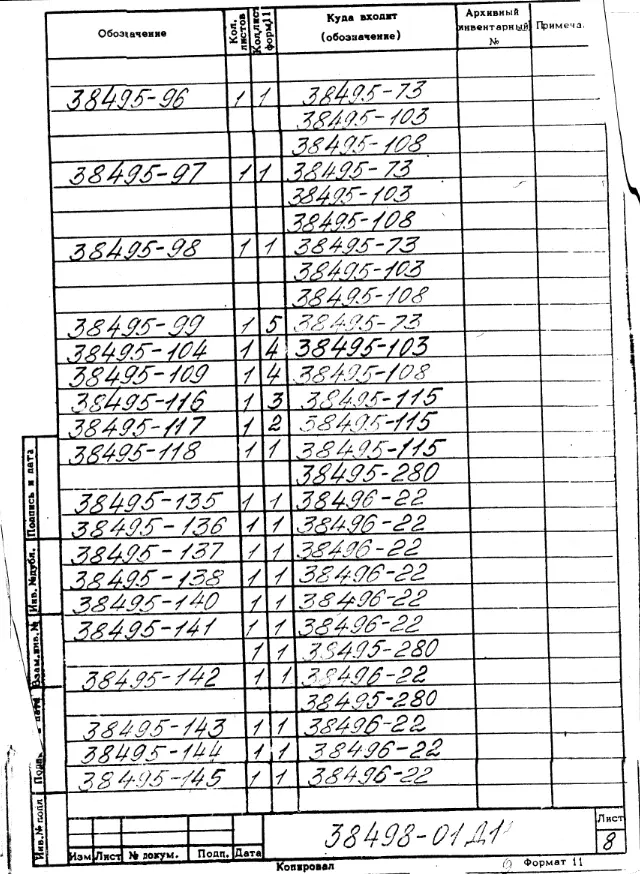 Обозначение Кол. листов Кол.лист. форм.11 Куда входит (обозначение) Архивный инвентарный № Примеча.
38495-96 1 1 38495-73
38495-103
38495-108
38495-97 1 1 38495-73
38495-103
38495-108
38495-98 1 1 38495-73
38495-103
38495-108
38495-99 1 5 38495-73
38495-104 1 4 38495-103
38495-109 1 4 38495-108
38495-116 1 3 38495-115
38495-117 1 2 38495-115
38495-118 1 1 38495-115
38495-280
38495-135 1 1 38496-22
38495-136 1 1 38496-22
38495-137 1 1 38496-22
38495-138 1 1 38496-22
38495-140 1 1 38496-22
38495-141 1 1 38496-22
1 1 38495-280
38495-142 1 1 38496-22
38495-280
38495-143 1 1 38496-22
38495-144 1 1 38496-22
38495-145 1 1 38496-22
Подпись и дата
Инв. №дубл.
Взам.инв.№
Инв.№ подл
38498-01Д1
Лист
8
Изм Лист № докум. Подп. Дата
Копировал
Формат 11